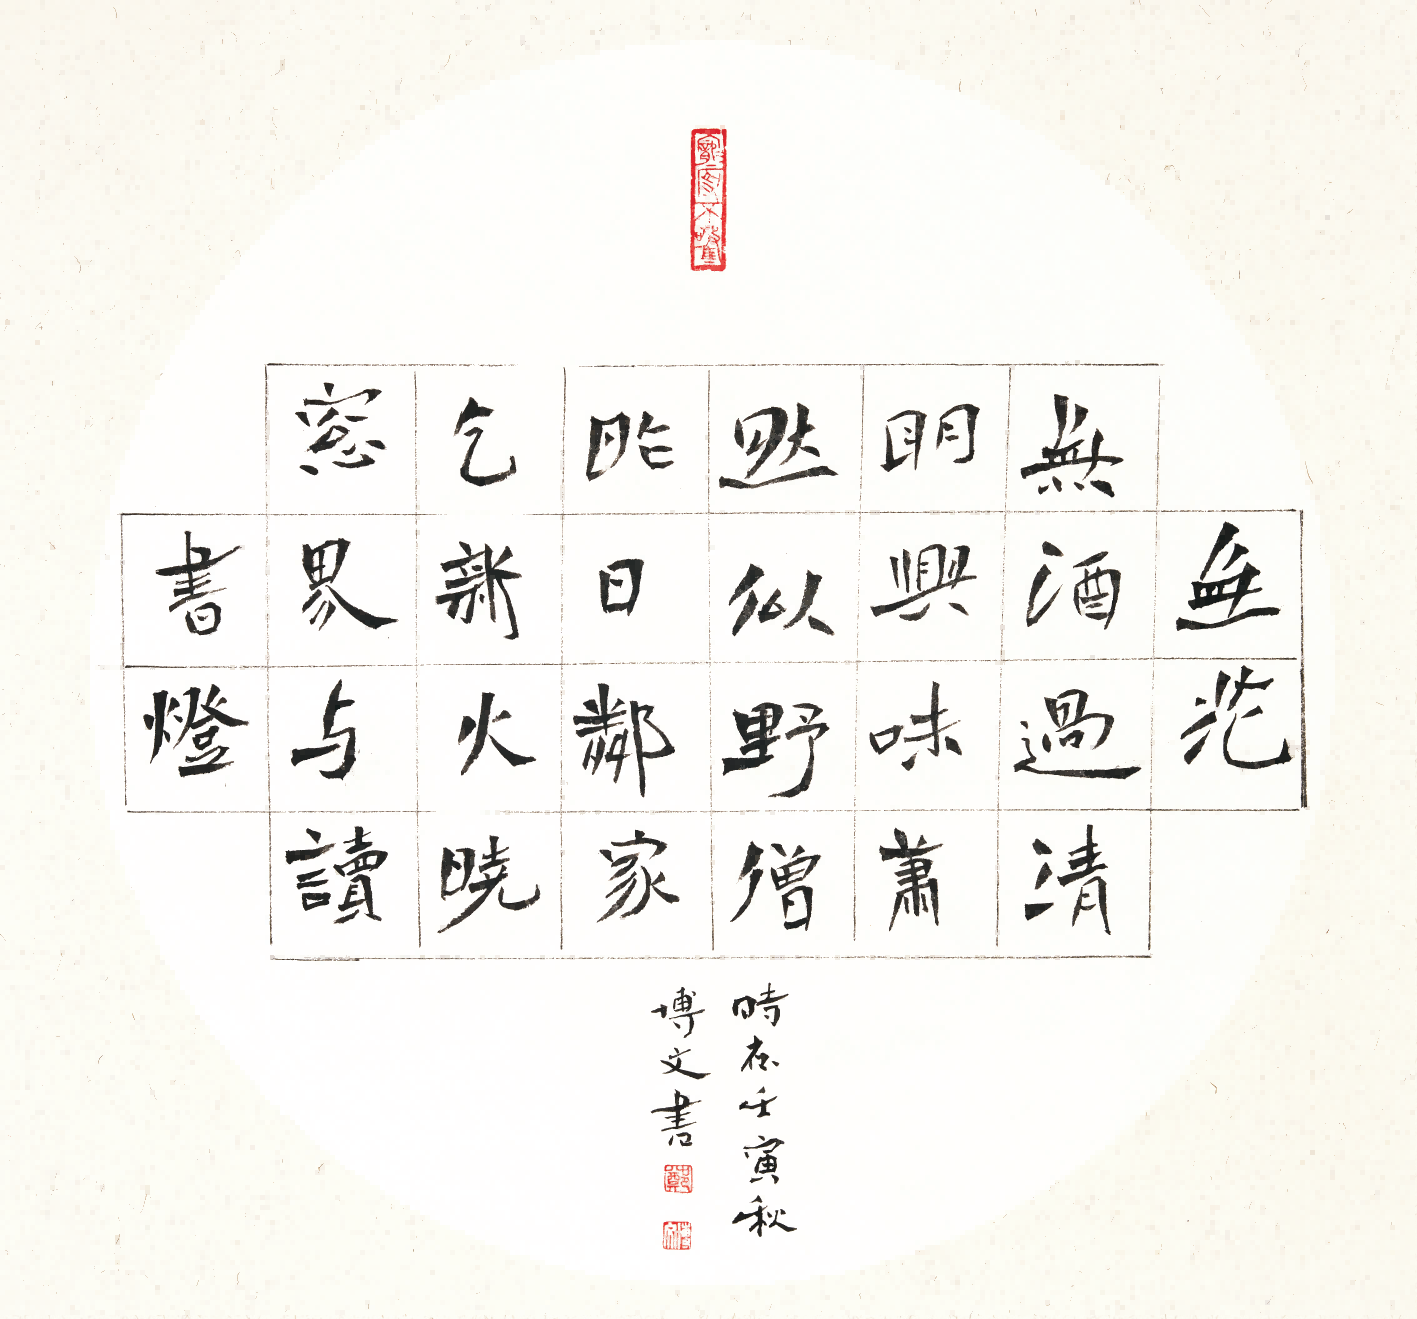 無花
無酒過清
明興味蕭
然似野僧
昨日鄰家
乞新火曉
窓界与讀
書燈
時在壬寅秋
博文書
鄭